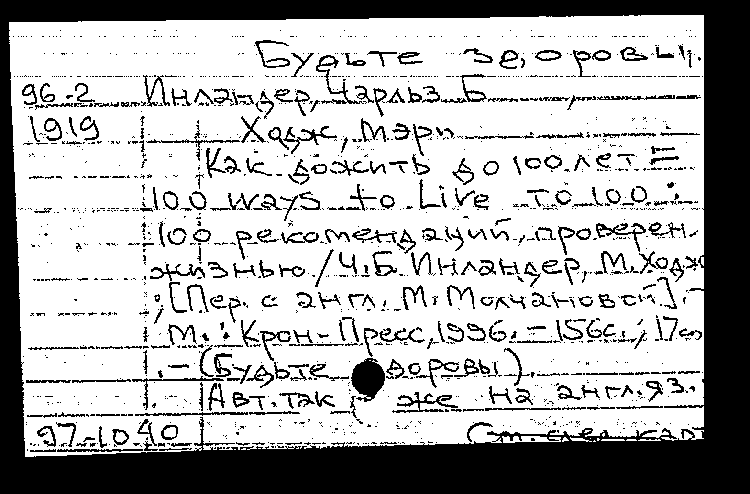 Будьте здоровы.
96-2 Инландер, Чарльз Б
1919 Ходж, Мэри
Как дожить до 100 лет =
100 ways to Live TO 100 :
100 рекомендаций, проверен.
жизнью / Ч.Б. Инландер, М. Ходж
; [Пер. с англ. М. Молчановой]. -
М. : Крон-Пресс, 1996. - 156с. ; 17с
. - (Будьте доровы).
Авт. так же на англ. яз.
97-1040 См. след. карт